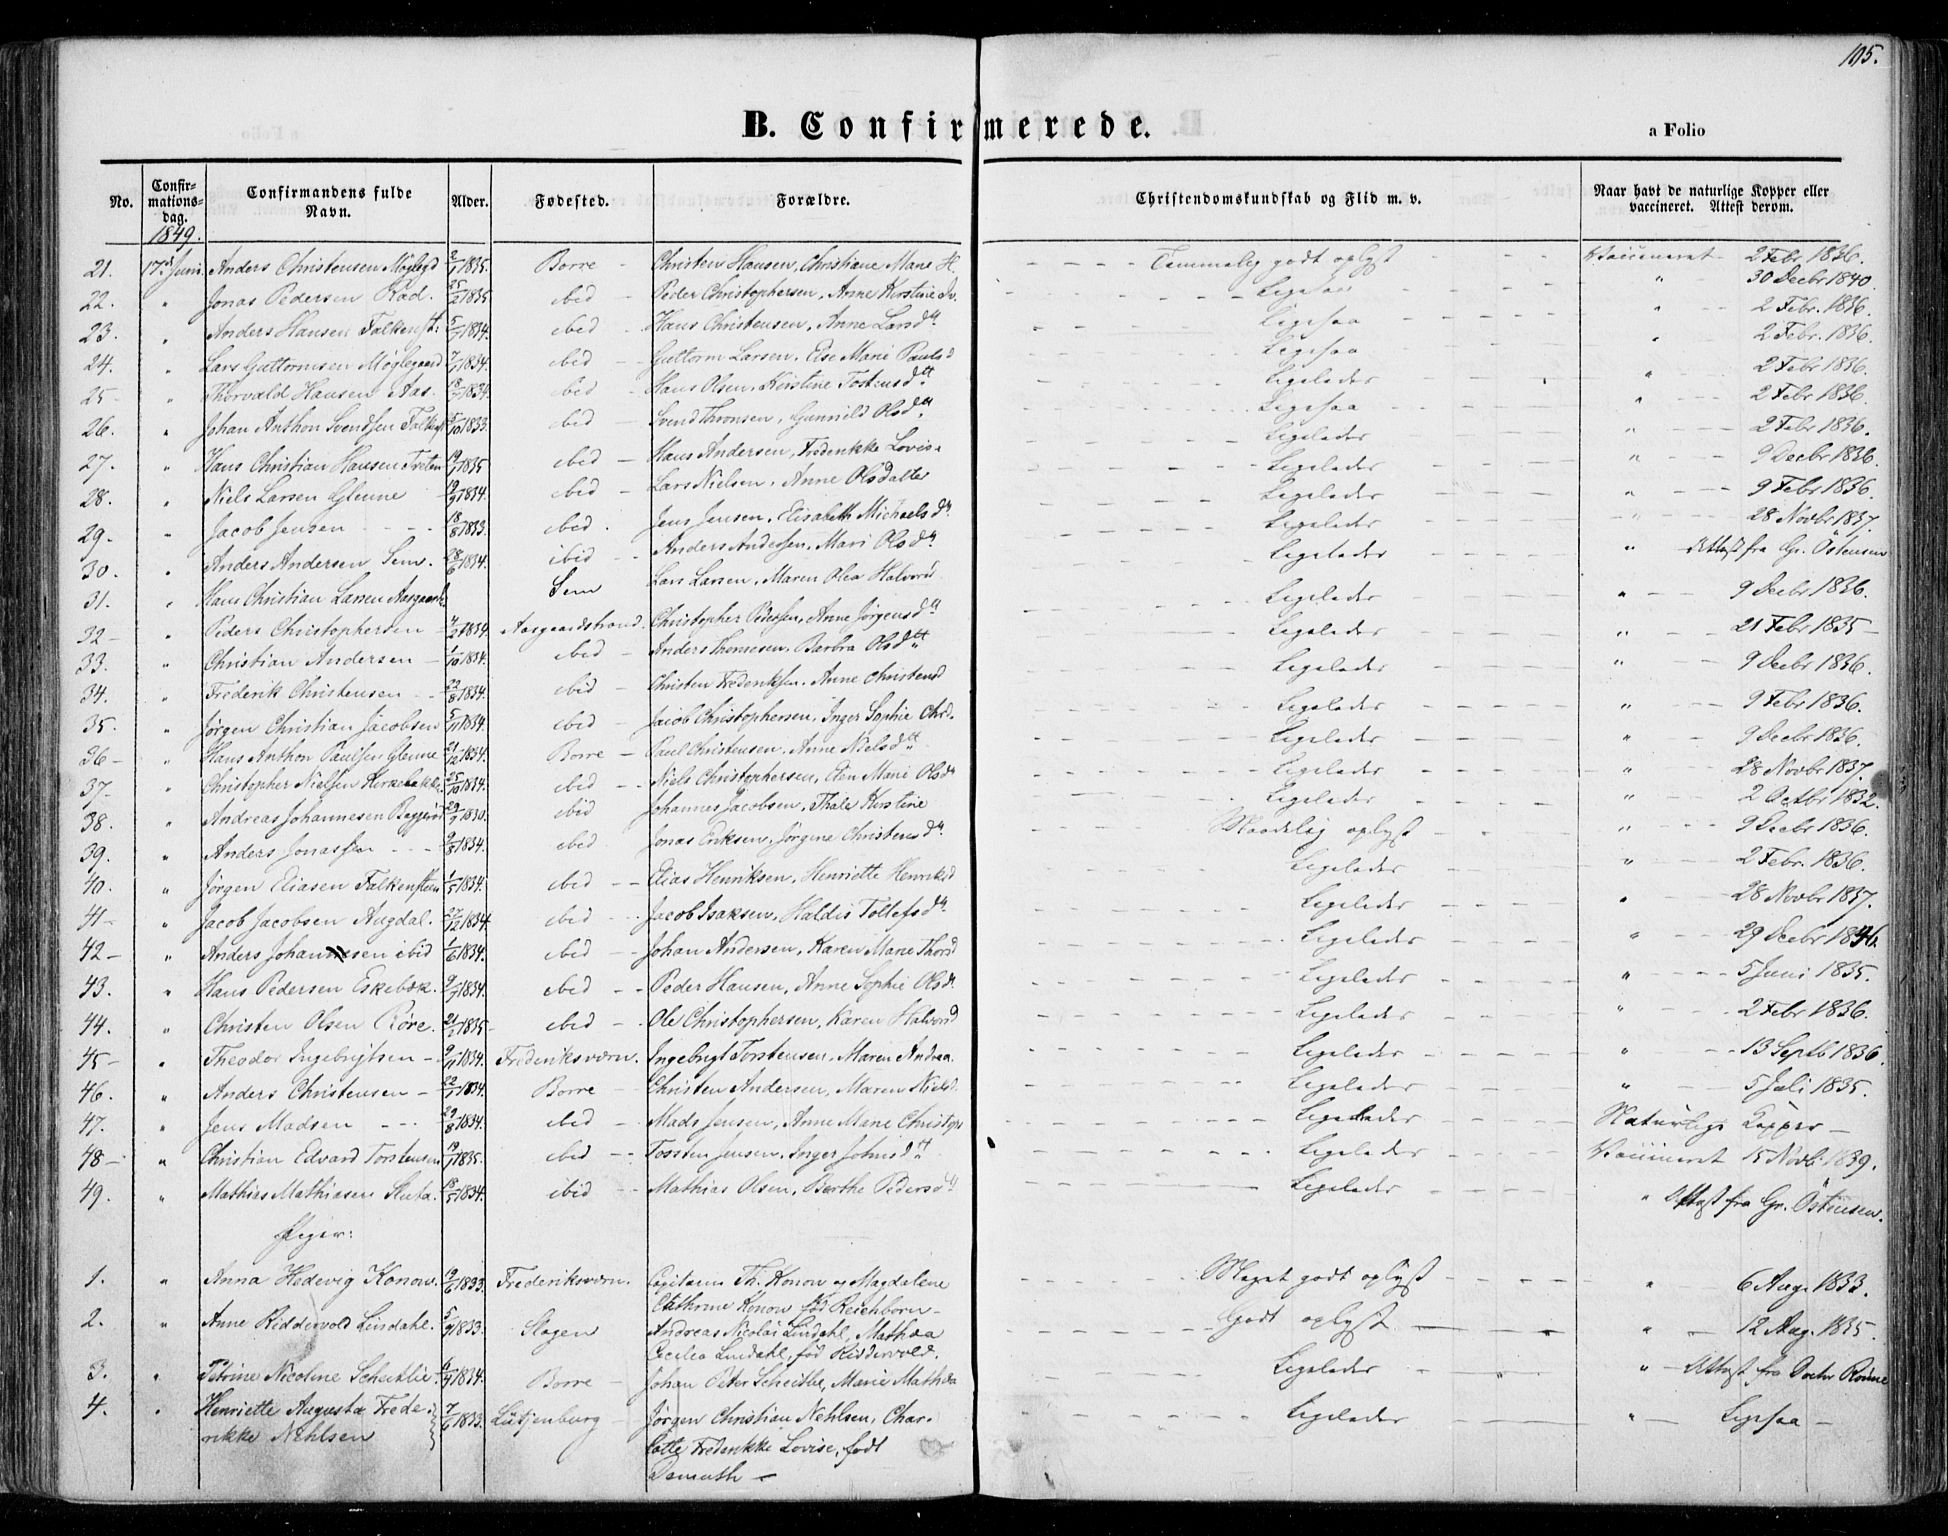 105.
B. Confirmerede.
a Folio
No. Confirmationsdag. Confirmandens fulde Navn. Alder. Fødested. Forældre. Christendomskundskab og Flid m. v. Naar havt de naturlige Kopper eller vaccineret. Attest derom.
1849.
21. 17de Juni Anders Christensen Møglegd 1835. Borre Christen Hansen, Christiane Marie H. Temmelig godt oplyst Vaccineret 2 Febr 1836.
22. " Jonas Pedersen Rød. 25/2 1835 ibid Peder Christophersen, Anne Kirstine Ligesaa " 30 Decbr 1840.
23. " Anders Hansen Falkenst: 1834. ibid Hans Christensen, Anne Larsdtr Ligesaa " 2 Febr. 1836.
24. " Lars Guttormsen Møglegaard 1834. ibid Guttorm Larsen, Else Marie Paulsd Ligesaa " 2 Febr. 1836.
25 " Thorvald Hansen Aas. 1834. ibid Hans Olsen, Kirstine Tostensdtt Ligeledes " 2 Febr 1836.
26. " Johan Anthon Svendsen Falkenst 5/10 1833. ibid Svend Thronsen, Gunnild Olsdtr Ligesaa " 2 Febr 1836.
27. " Hans Christian Hansen Freten 1835 ibid Hans Andersen, Frederikke Lovise Ligeledes " 2 Febr 1836.
28. " Niels Larsen Glenne 1834. ibid Lars Nielsen, Anne Olsdatter Ligeledes " 9 Decbr 1836.
29. " Jacob Jensen 18/8 1833. ibid. Jens Jensen, Elisabeth Michaelsdtr Ligeledes " 9 Febr 1836.
30. " Anders Andersen Sem. 28/6 1834. ibid Anders Andersen, Mari Olsdtr Ligeledes " 28 Novbr 1837.
31. " Hans Christian Larsen Aasgaards Sem Lars Larsen, Maren Olea Halvorsd Ligeledes " Attest fra Gr. Östensen
32 " Peder Christophersen 4/2 1834. Aasgaardstrand. Christopher Pedersen, Anne Jørgensdtr Ligeledes " 9 Decbr 1836.
33. " Christian Andersen 1/10 1834. ibid Anders Thomesen, Barbra Olsdtt Ligeledes " 21 Febr 1835
34. " Frederik Christensen 22/8 1834. ibid Christen Frederiksen, Anne Christensd Ligeledes " 9 Decbr 1836.
35. " Jørgen Christian Jacobsen 5/11 1834. ibid Jacob Christophersen, Inger Sophie Chrd. Ligeledes " 9 Febr 1836.
36 " Hans Anthon Paulsen Glenne 21/12 1834. Borre Paul Christensen, Anne Nielsdtt Ligeledes " 9 Decbr 1836.
37. " Christopher Nielsen Kirkebakke 25/10 1834. ibid Niels Christophersen, Elen Marie Olsdr Ligeledes " 28 Novbr 1837.
38. " Andreas Johannesen Baggerød 1830. ibid Johannes Jacobsen, Thale Kirstine Ligeledes " 2 Octbr 1832.
39. " Anders Jonassen 9/8 1834. ibid Jonas Eriksen, Jørgine Christensdtr Maadelig oplyst " 9 Decbr 1836.
40. " Jørgen Eliasen Falkensteen 1/5 1834. ibid Elias Henriksen, Henriette Henriksd Ligeledes " 2 Febr. 1836.
41 " Jacob Jacobsen Augdal. 27/12 1834. ibid Jacob Isaksen, Haldis Tollefsdtr. Ligeledes " 28 Novbr 1837.
42 " Anders Johansen ibid 1/6 1834. ibid Johan Andersen, Karen Marie Thorsd Ligeledes " 29 Decbr 1846.
43. " Hans Pedersen Eskebæk. 1834. ibid Peder Hansen, Anne Sophie Olsdr. Ligeledes " 5 Juni 1835.
44. " Christen Olsen Røre. 21/2 1835 ibid Ole Christophersen, Karen Halvorsd Ligeledes " 2 Febr 1836.
45 " Theodor Ingebrigtsen 1834. Frederiksværn. Ingebrigt Torstensen, Maren Andrea. Ligeledes " 13 Septb 1836
46. " Anders Christensen 1834. Borre Christen Andersen, Maren Nielsd. Ligeledes " 5 Juli 1835.
47. " Jens Madsen 29/8 1834. ibid Mads Jensen, Anne Marie Christoph Ligeledes Naturlige Kopper
48 " Christian Edvard Torstensen 19/1 1835. ibid Tosten Jensen, Inger Johnsdtt Ligeledes Vaccineret 15 Novb. 1839.
49. " Mathias Mathiasen Sluta. 1834. ibid Mathias Olsen, Berthe Pedersdtt Ligeledes " Attest fra Gr. Östensen.
Piger:
1. " Anna Hedevig Konow. 1833. Frederiksværn. Capitain Th. Konow og Magdalene Meget godt oplyst " 6 Aug. 1833.
Cathrine Konow fød Reichborn
2. " Anne Riddervold Lindahl. 5/9 1833. Slagen Andreas Nicolai Lindahl, Mathea Godt oplyst " 12 Aug. 1835.
Cecilia Lindahl, fød Riddervold.
3. " Petrine Nicoline Scheitlie. 1834. Borre Johan Peter Scheitlie, Marie Mathea Ligeledes " Attest fra Doctor Rönne
4. " Henriette Augusta Frede- 7/6 1833. Lütjenburg Jørgen Christian Nehlsen, Char- Ligeledes " Ligesaa
rikke Nehlsen lotte Frederikke Lovise, født
Demuth